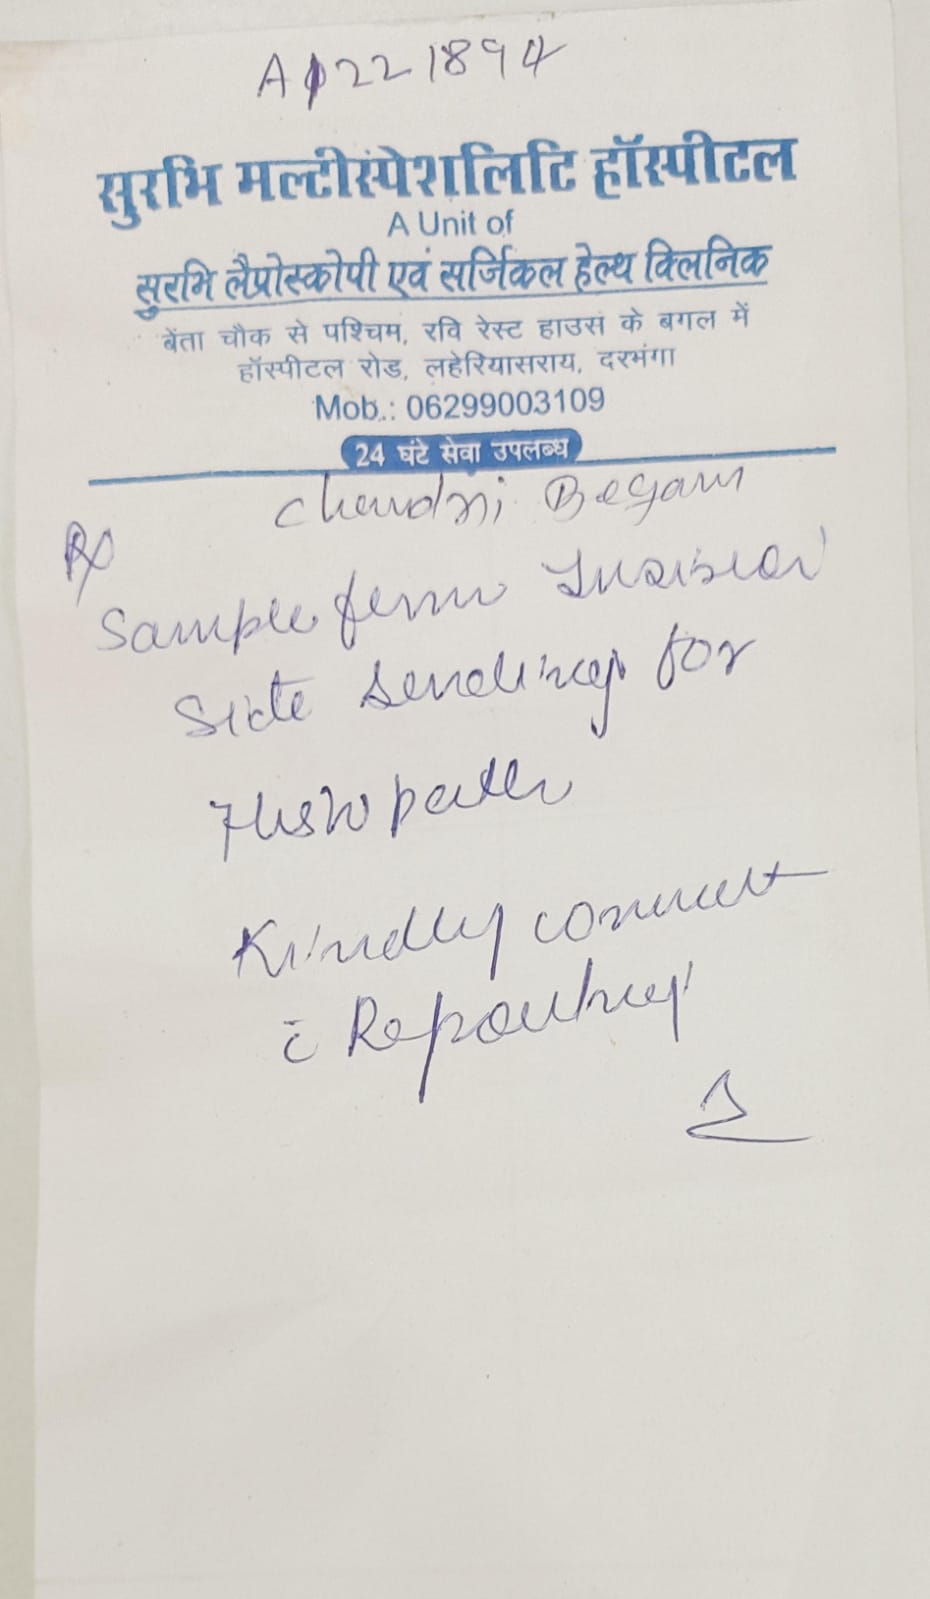 A1221894
सुरभि मल्टीस्पेशलिटि हॉस्पीटल
A Unit of
सुरभि लैप्रोस्कोपी एवं सर्जिकल हेल्थ क्लिनिक
बेंता चौक से पश्चिम, रवि रेस्ट हाउस के बगल में
हॉस्पीटल रोड, लहेरियासराय, दरभंगा
Mob.: 06299003109
24 घंटे सेवा उपलब्ध
Chandni Begam
Rx
Sample from Incision
Site sending for
Histopath
Kindly connect
c̄ Reporting